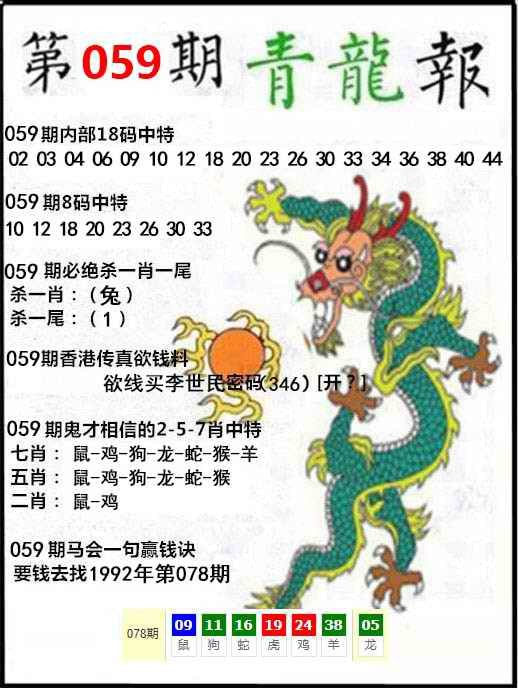 第059期青龍報
059期内部18码中特
02 03 04 06 09 10 12 18 20 23 26 30 33 34 36 38 40 44
059期8码中特
10 12 18 20 23 26 30 33
059 期必绝杀一肖一尾
杀一肖：（兔）
杀一尾：（1）
059期香港传真欲钱料
欲线买李世民密码(346) [开？]
059期鬼才相信的2-5-7肖中特
七肖：鼠-鸡-狗-龙-蛇-猴-羊
五肖：鼠-鸡-狗-龙-蛇-猴
二肖：鼠-鸡
059期马会一句赢钱诀
要钱去找1992年第078期
078期 09 11 16 19 24 38 05
鼠 狗 蛇 虎 鸡 羊 龙